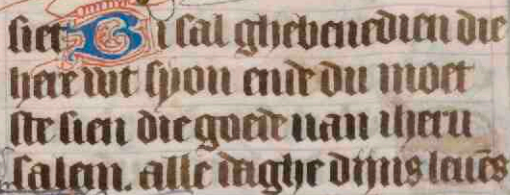 siet Di sal ghebenedien die
here wt syon ende du moet
ste sien die goede uan iheru
salem. alle daghe dijns leuēs